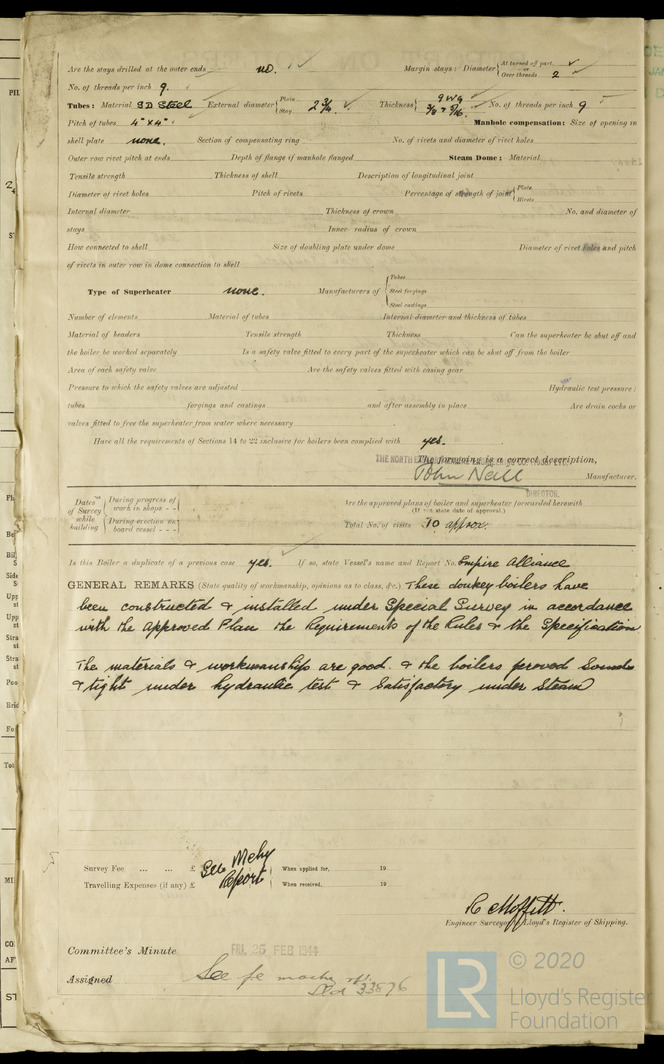 Are the stays drilled at the outer ends no. Margin stays: Diameter { At turned off part, or Over threads 2
No. of threads per inch 9.
Tubes: Material S D Steel External diameter { Plain Stay 2 3/4 Thickness { 9 WG 3/8 & 5/16. No. of threads per inch 9
Pitch of tubes 4" x 4" Manhole compensation: Size of opening in
shell plate none. Section of compensating ring No. of rivets and diameter of rivet holes
Outer row rivet pitch at ends Depth of flange if manhole flanged Steam Dome: Material
Tensile strength Thickness of shell Description of longitudinal joint
Diameter of rivet holes Pitch of rivets Percentage of strength of joint { Plate Rivets
Internal diameter Thickness of crown No. and diameter of
stays Inner radius of crown
How connected to shell Size of doubling plate under dome Diameter of rivet holes and pitch
of rivets in outer row in dome connection to shell
Type of Superheater none. Manufacturers of { Tubes Steel forgings Steel castings
Number of elements Material of tubes Internal diameter and thickness of tubes
Material of headers Tensile strength Thickness Can the superheater be shut off and
the boiler be worked separately Is a safety valve fitted to every part of the superheater which can be shut off from the boiler
Area of each safety valve Are the safety valves fitted with easing gear
Pressure to which the safety valves are adjusted Hydraulic test pressure:
tubes forgings and castings and after assembly in place Are drain cocks or
valves fitted to free the superheater from water where necessary
Have all the requirements of Sections 14 to 22 inclusive for boilers been complied with yes.
The foregoing is a correct description,
THE NORTH EASTERN MARINE ENGINEERING CO. (1938) LTD.
John Neill Manufacturer.
DIRECTOR.
Dates of Survey while building { During progress of work in shops - - During erection on board vessel - - -
Are the approved plans of boiler and superheater forwarded herewith (If not state date of approval.)
Total No. of visits 70 approx.
Is this Boiler a duplicate of a previous case yes. If so, state Vessel's name and Report No. Empire Alliance
GENERAL REMARKS (State quality of workmanship, opinions as to class, &c.) These donkey boilers have
been constructed & installed under Special Survey in accordance
with the Approved Plan the Requirements of the Rules & the Specification
The materials & workmanship are good. & the boilers proved Sound
& tight under hydraulic test & Satisfactory under Steam
Survey Fee ... ... £ See Mchy Report When applied for, 19
Travelling Expenses (if any) £ When received, 19
R Moffitt.
Engineer Surveyor to Lloyd's Register of Shipping.
Committee's Minute FRI. 25 FEB 1944
Assigned See fe machy rpt.
Sld 33896
© 2020
LR Lloyd's Register
Foundation